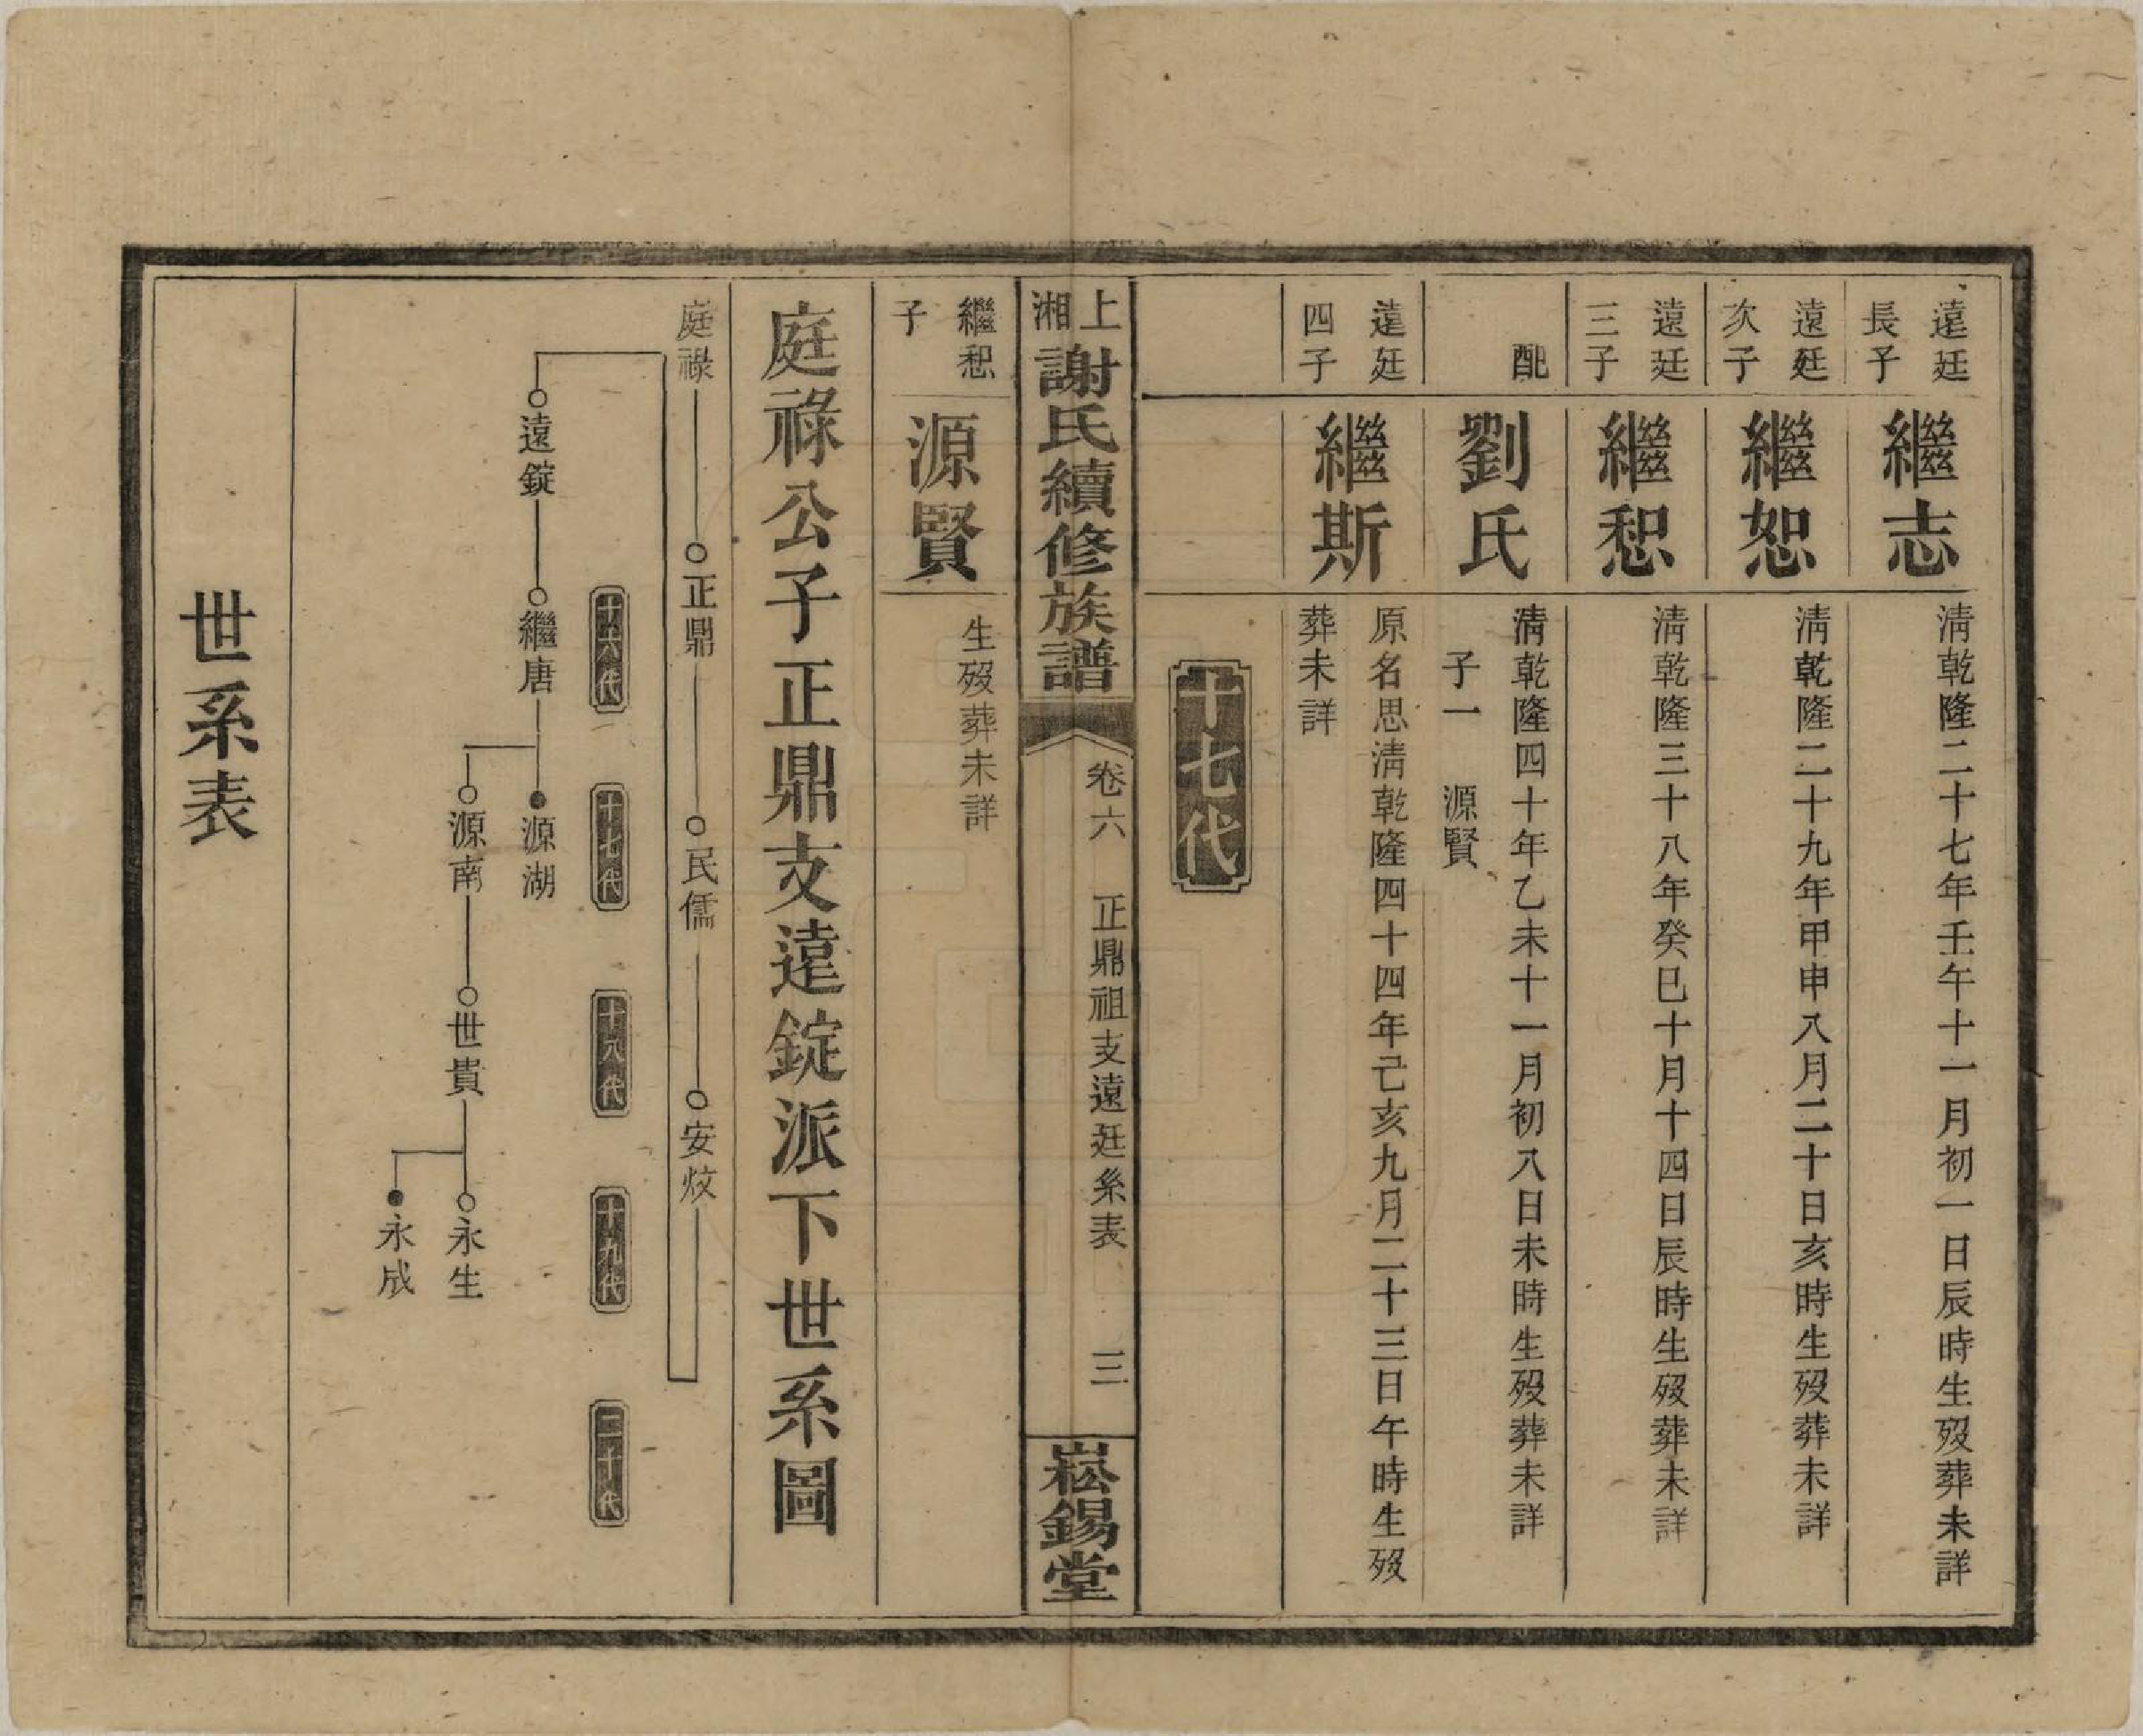 遠廷
長子
繼志
淸乾隆二十七年壬午十一月初一日辰時生歿葬未詳
遠廷
次子
繼恕
淸乾隆二十九年甲申八月二十日亥時生歿葬未詳
遠廷
三子
繼恝
淸乾隆三十八年癸巳十月十四日辰時生歿葬未詳
配
劉氏
淸乾隆四十年乙未十一月初八日未時生歿葬未詳
子一 源賢
遠廷
四子
繼斯
原名思淸乾隆四十四年己亥九月二十三日午時生歿
葬未詳
十七代
上湘謝氏續修族譜
卷六 正鼎祖支遠廷系表 三
崧錫堂
繼恝
子
源賢
生歿葬未詳
庭祿公子正鼎支遠錠派下世系圖
庭祿 正鼎 民儒 安炆
十六代 十七代 十八代 十九代 二十代
遠錠 繼唐 源湖
源南 世貴 永生
永成
世系表